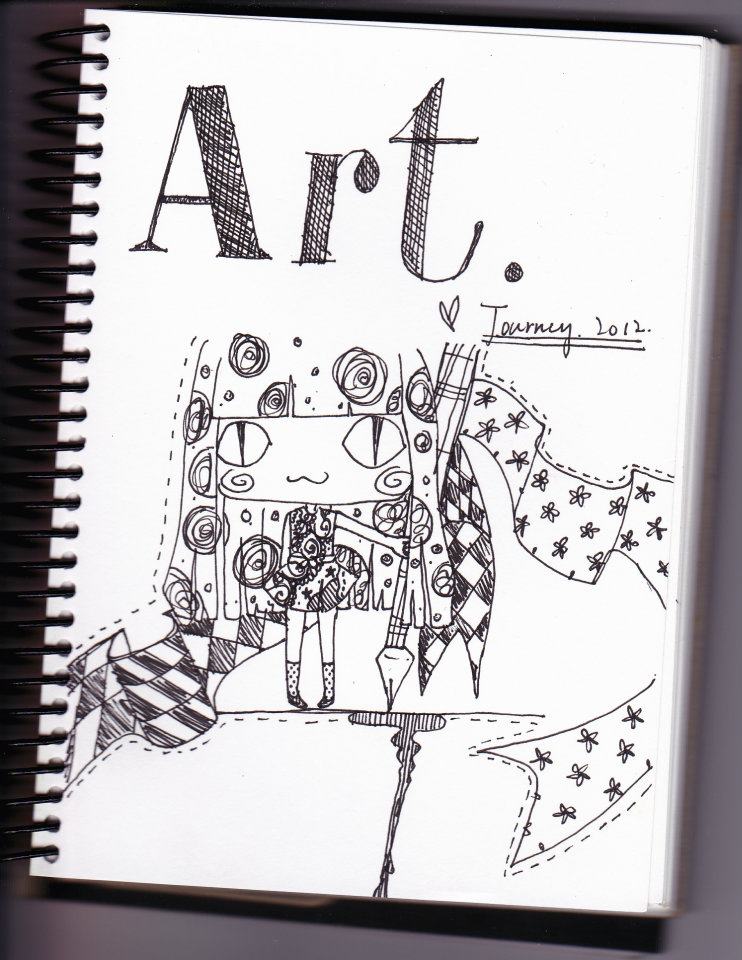 Art.
Journey. 2012.